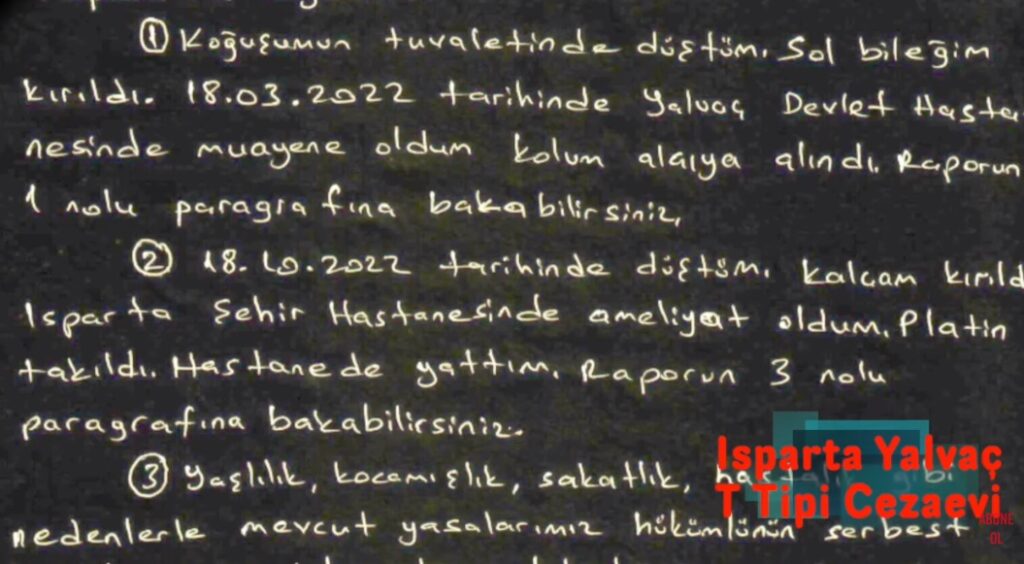 ① Koğuşumun tuvaletinde düştüm. Sol bileğim
kırıldı. 18.03.2022 tarihinde Yalvaç Devlet Hasta
nesinde muayene oldum kolum alçıya alındı. Raporun
1 nolu paragrafına bakabilirsiniz,
② 18.10.2022 tarihinde düştüm. Kalçam kırıld
Isparta Şehir Hastanesinde ameliyat oldum. Platin
takıldı. Hastanede yattım. Raporun 3 nolu
paragrafına bakabilirsiniz.
③ Yaşlılık, kocamışlık, sakatlık, hastalık gibi
nedenlerle mevcut yasalarımız hükümlünün serbest
Isparta Yalvaç
T Tipi Cezaevi
ABONE
OL